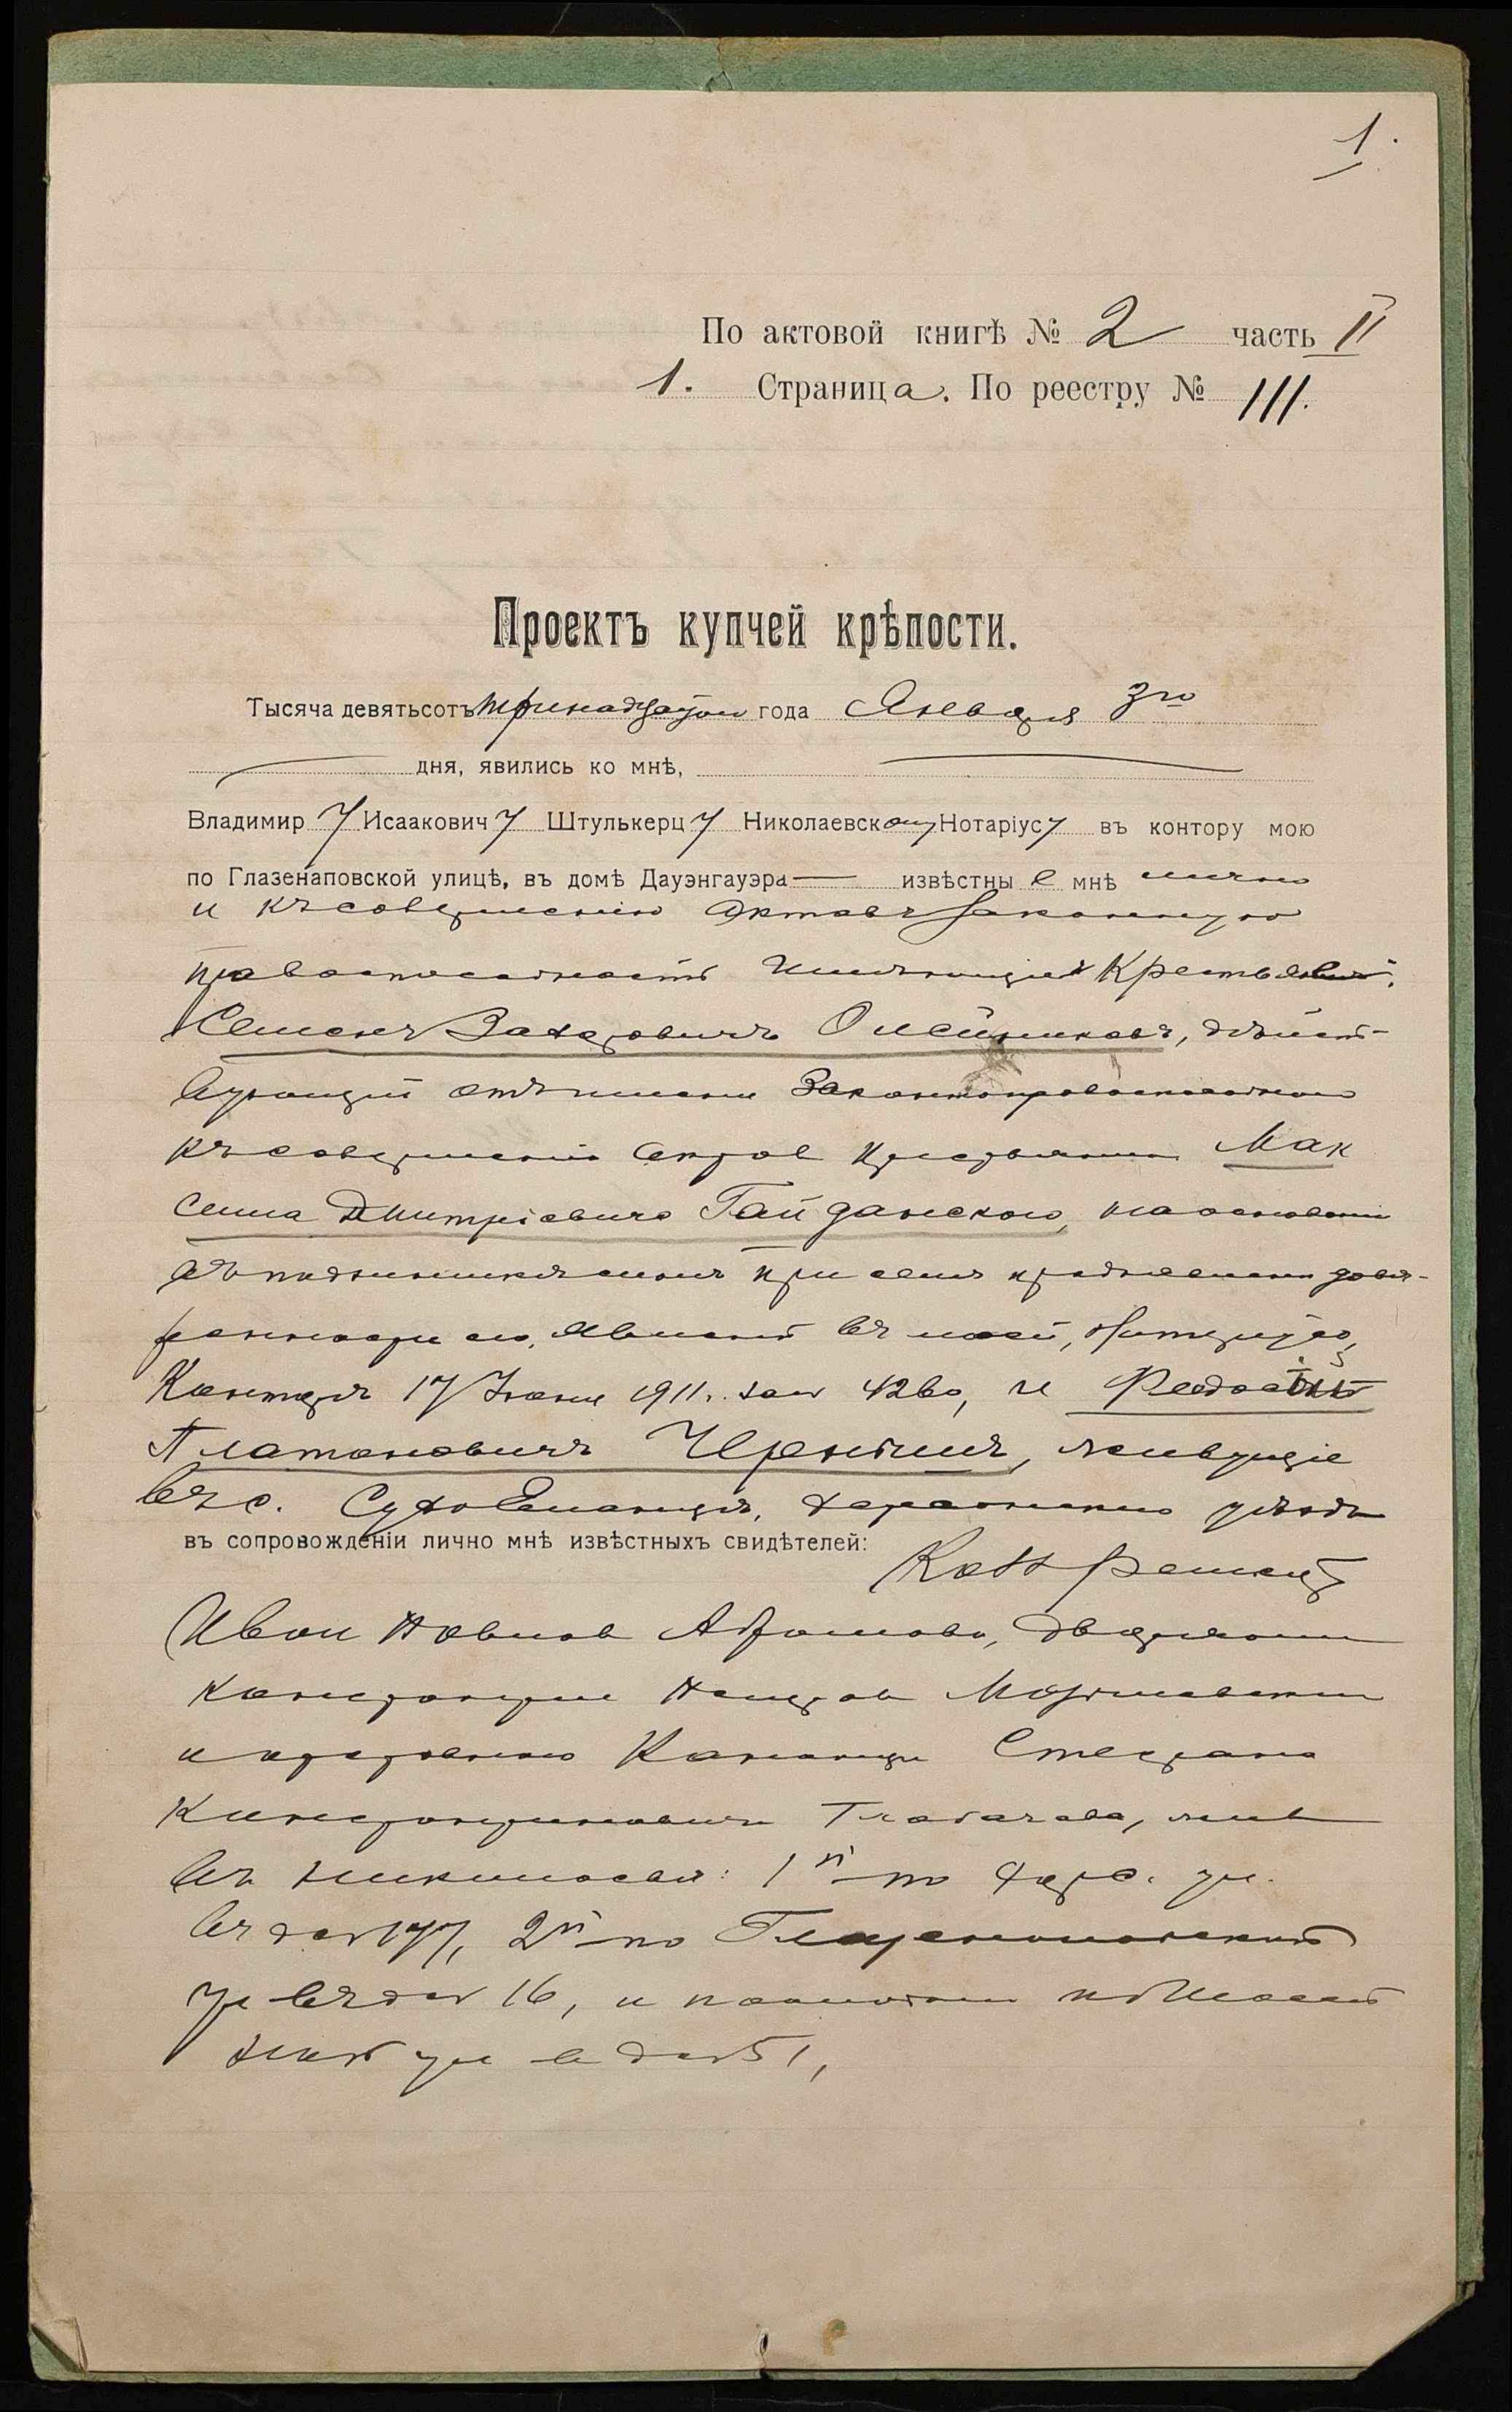 1.
По актовой книгѣ № 2 часть II
1. Страница. По реестру № 111.
Проектъ купчей крѣпости.
Тысяча девятьсотъ тринадцатого года Января 3го
дня, явились ко мнѣ,
Владимиру Исааковичу Штулькерцу Николаевскому Нотаріусу въ контору мою
по Глазенаповской улицѣ, въ домѣ Дауэнгауэра извѣстные мнѣ лично
и къ совершенію актовъ законную
правоспособность имѣющіе крестьяне:
Семенъ Захаровичъ Олейниковъ, дѣйст-
вующій отъ имени законоправоспособного
къ совершенію актов крестьянина Мак
сима Дмитріевича Гайданского, на основаніи
въ подлинникѣ мнѣ при семъ предъявленной довѣ-
ренности его, явленной въ моей, Нотаріуса,
Конторѣ 17 Іюня 1911 г. за № 4260, и Феодосій
Платоновичъ Черний, живущіе
въ с. Сухо Еланецѣ, Херсонского уѣзда
въ сопровожденіи лично мнѣ извѣстныхъ свидѣтелей:
Иван Абрамова, дворянина
и крестьянина Степана
Ткачева, жив
въ Николаевѣ: 1й по Херс. ул.
въ до № 177, 2й по Глазенаповской
ул въ до № 16, и послѣдній по
ул в до № 51,